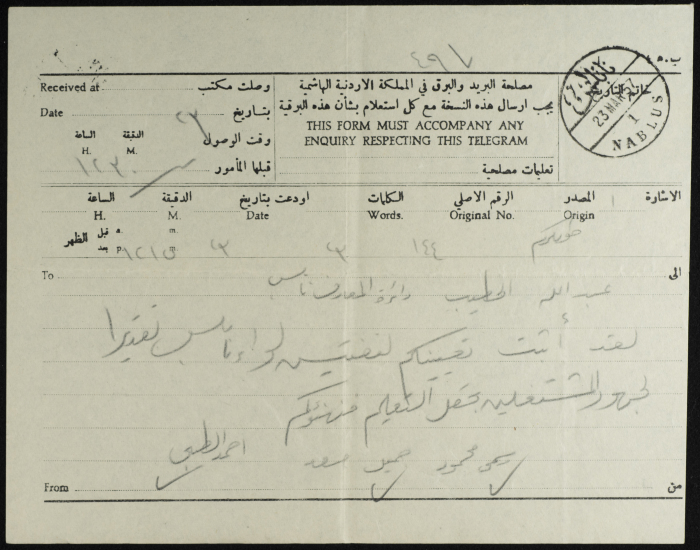 ٤٩٧
ب. ه. ١٥
مصلحة البريد والبرق في المملكة الاردنية الهاشمية
يجب ارسال هذه النسخة مع كل استعلام بشأن هذه البرقية
THIS FORM MUST ACCOMPANY ANY
ENQUIRY RESPECTING THIS TELEGRAM
تعليمات مصلحية
Received at وصلت مكتب
Date بتاريخ ٢٣
وقت الوصول الدقيقة الساعة
H. M.
قبلها المأمور ١٢٣٠
خاتم التاريخ
نابلس
23 MAR 57
1
NABLUS
الاشارة المصدر الرقم الاصلي الكلمات اودعت بتاريخ الدقيقة الساعة
Origin Original No. Words. Date M. H.
قبل الظهر بعد
a. m.
p. m.
طولكرم ١٤٤ ٢٣ ٢٣ ١٢١٥
To الى
عبدالله الخطيب دائرة المعارف نابلس
لقد أثبت تعيينكم لتفتيش لواء نابلس تقديرا
لجهود المشتغلين بحقل التعليم فنهنؤكم
محمود جميل سعد احمد
From من